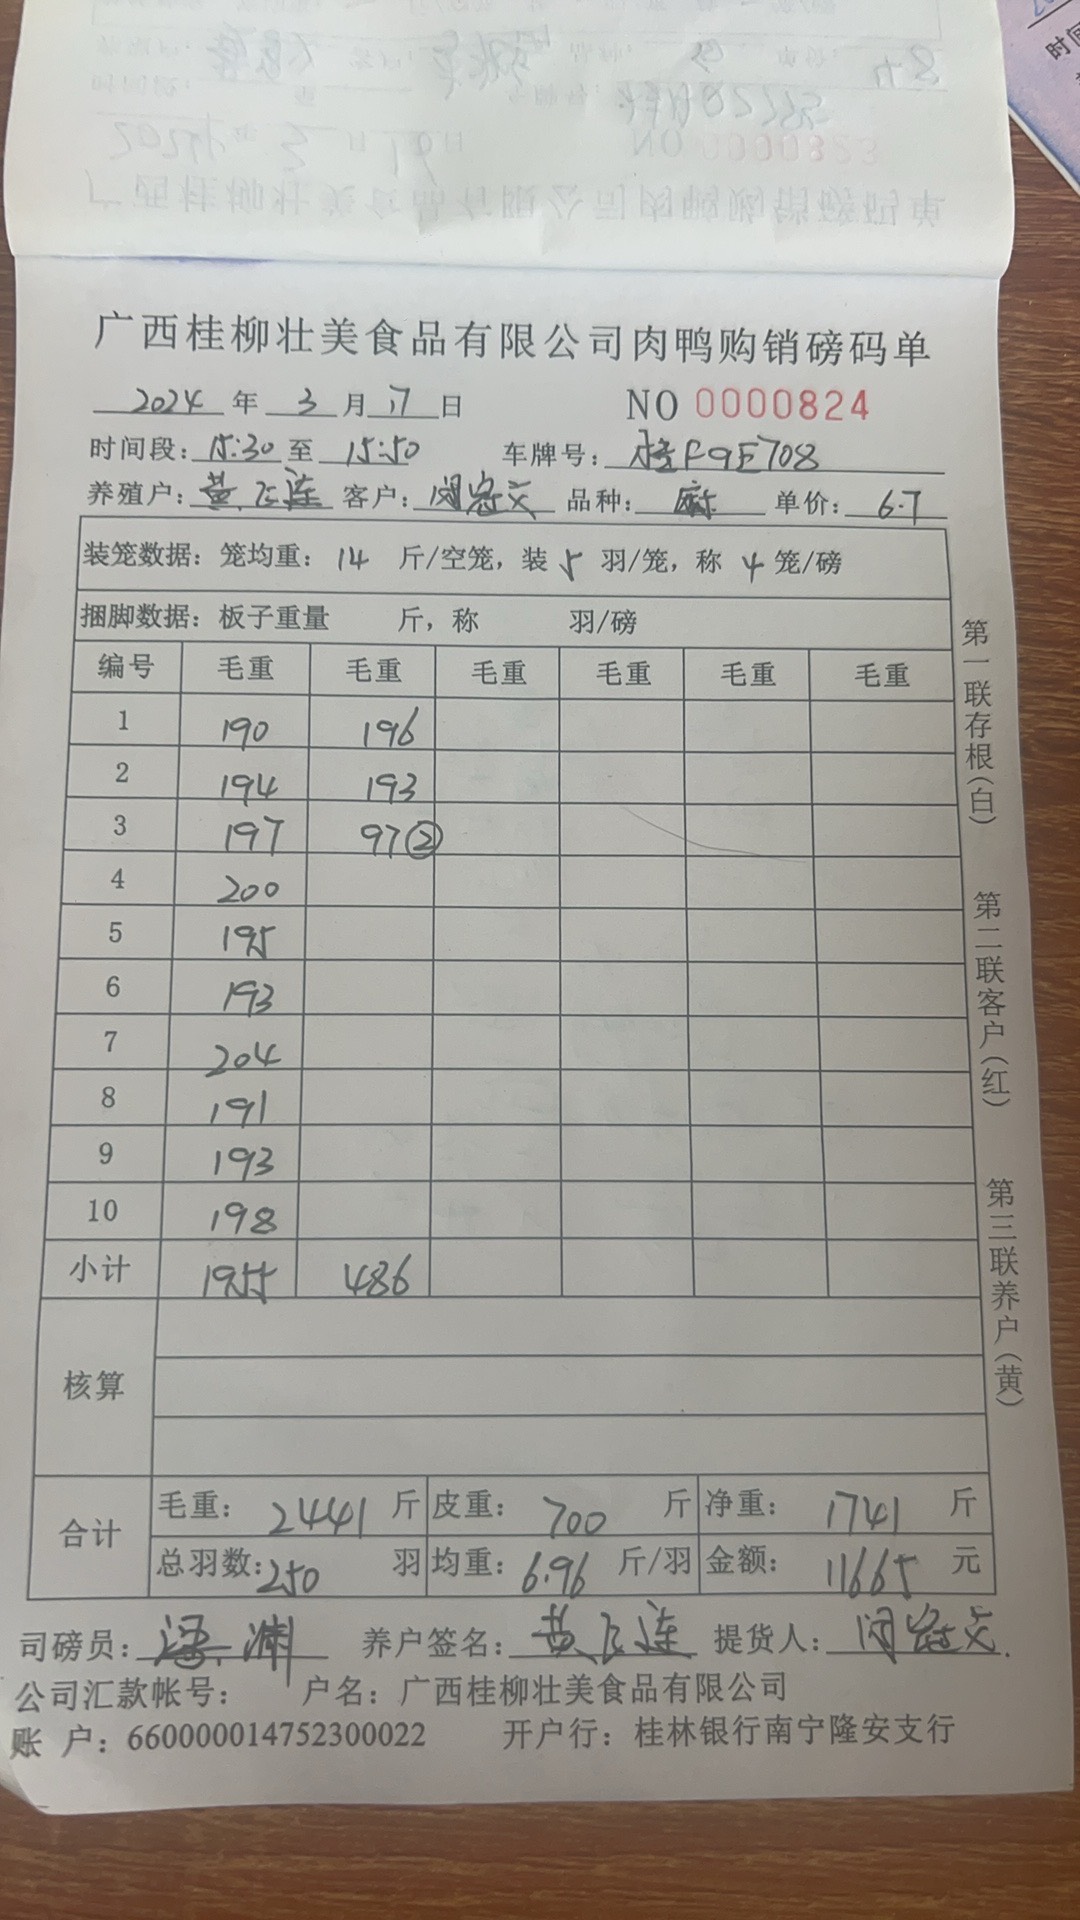 广西桂柳壮美食品有限公司肉鸭购销磅码单
2024年3月17日 NO 0000824
时间段:15:30至15:50 车牌号:桂F9E708
养殖户:黄飞莲 客户:闭 品种:麻 单价:6.7
装笼数据:笼均重:14斤/空笼,装5羽/笼,称4笼/磅
捆脚数据:板子重量 斤,称 羽/磅
编号 毛重 毛重 毛重 毛重 毛重 毛重
1 190 196
2 194 193
3 197 97②
4 200
5 195
6 193
7 204
8 191
9 193
10 198
小计 1955 486
核算
合计 毛重:2441斤 皮重:700斤 净重:1741斤
总羽数:250羽 均重:6.96斤/羽 金额:11665元
司磅员: 渊 养户签名:黄飞莲 提货人:闭
公司汇款帐号: 户名:广西桂柳壮美食品有限公司
账 户:660000014752300022 开户行:桂林银行南宁隆安支行
第一联存根(白)
第二联客户(红)
第三联养户(黄)
时间